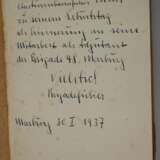 zu seinem Geburtstag
als Erinnerung an seine
Mitarbeit als Adjutant
der Brigade 48, Marburg
Brigadeführer
Marburg 30 I 1937